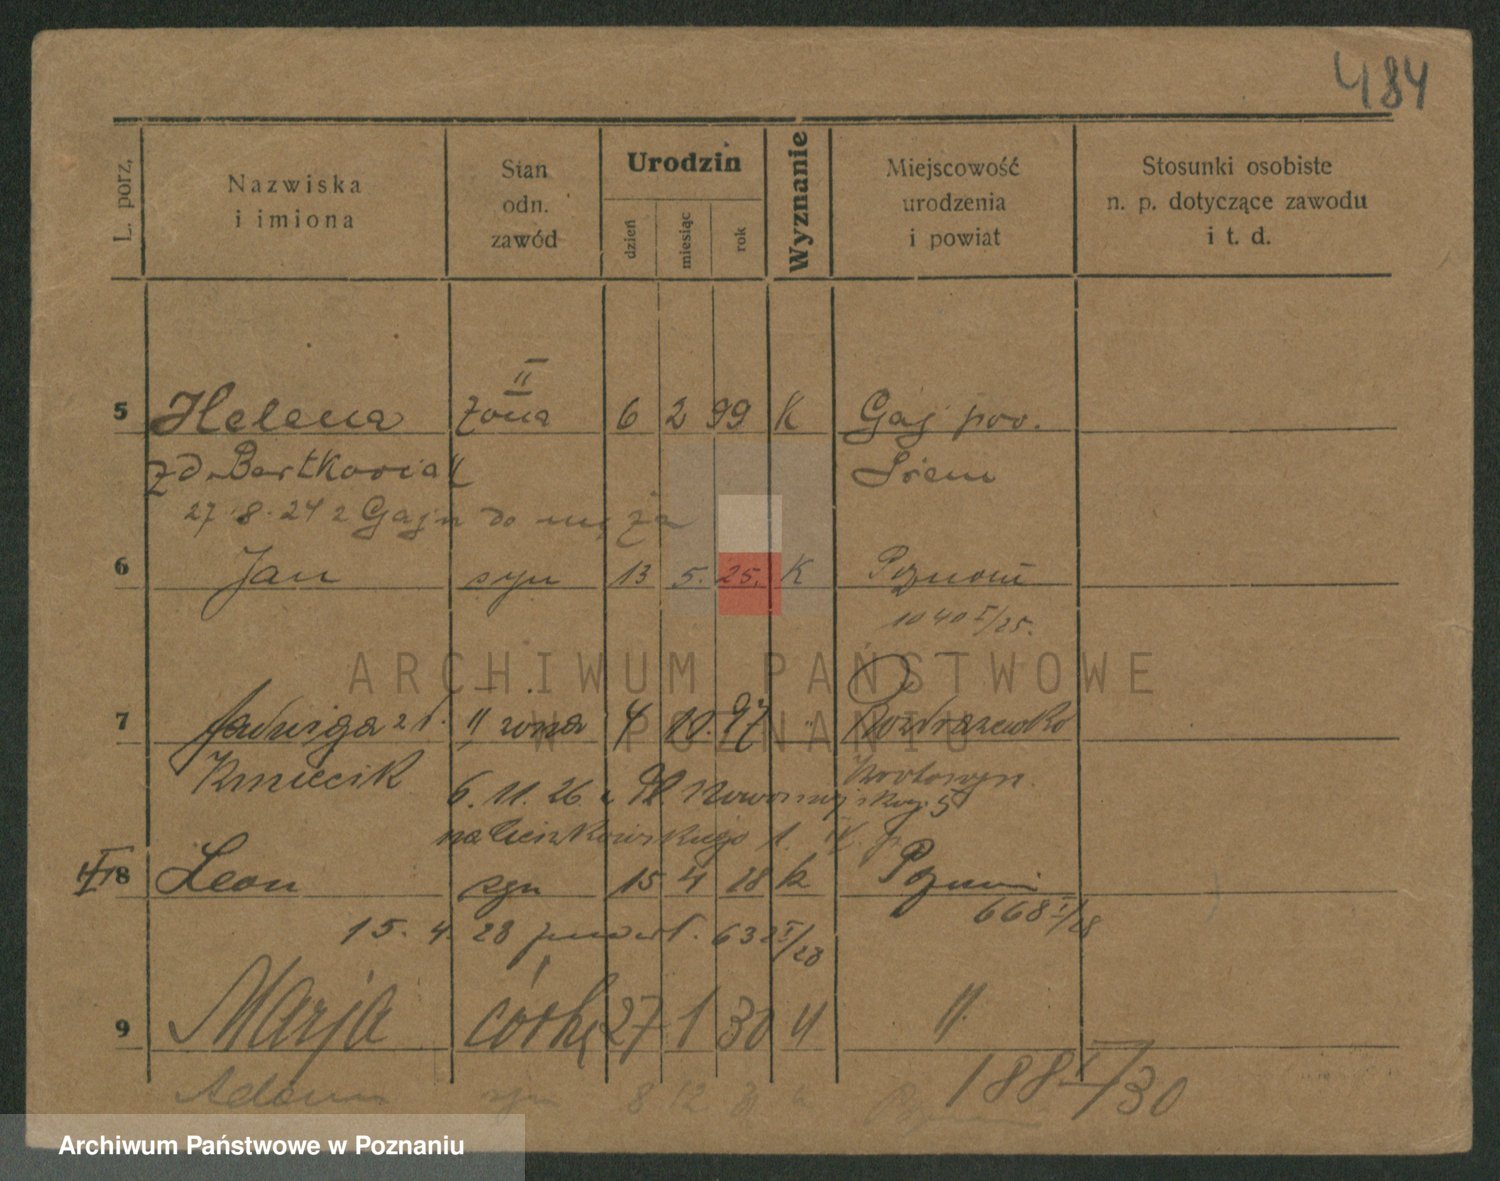 484
L. porz.
Nazwiska
i imiona
Stan
odn.
zawód
Urodzin
dzień
miesiąc
rok
Wyznanie
Miejscowość
urodzenia
i powiat
Stosunki osobiste
n. p. dotyczące zawodu
i t. d.
II
5 Helena żona 6 2 99 K Gaj pow.
zd. Bartkowiak Śrem
27.8.24 z Gaju do męża
6 Jan syn 13 5. 25. K Poznań
1040 I/25.
7 Jadwiga zd. II żona 4 10. 97 " Rozdrażewko
Kmiecik Krotoszyn
6.11.26
8 Leon syn 15 4 28 k Poznań
668 I/28
15. 4. 28 632 I/28
9 Marja córka 27 1 30 " "
188 I/30
Adam syn 8 12
ARCHIWUM PAŃSTWOWE
W POZNANIU
Archiwum Państwowe w Poznaniu